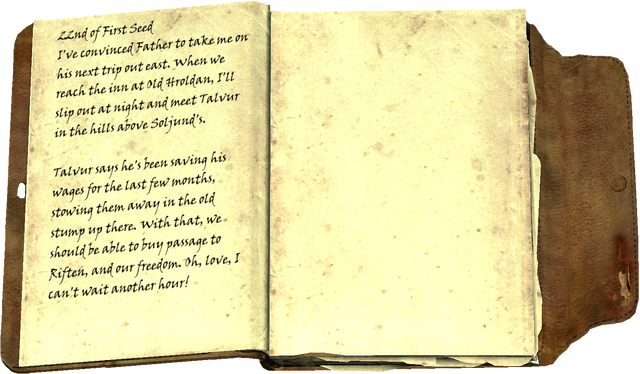 22nd of First Seed
I've convinced Father to take me on
his next trip out east. When we
reach the inn at Old Hroldan, I'll
slip out at night and meet Talvur
in the hills above Soljund's.
Talvur says he's been saving his
wages for the last few months,
stowing them away in the old
stump up there. With that, we
should be able to buy passage to
Riften, and our freedom. Oh, love, I
can't wait another hour!